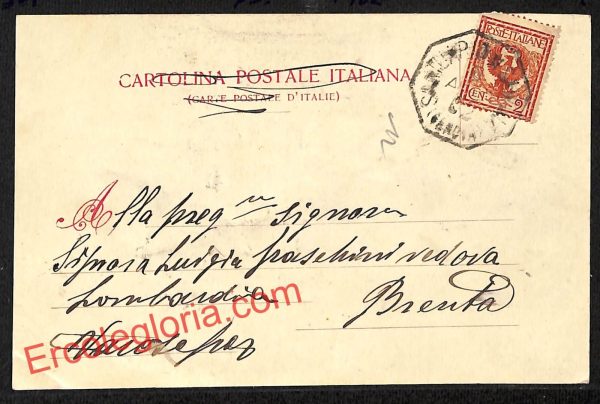 CARTOLINA POSTALE ITALIANA
(CARTE POSTALE D'ITALIE)
POSTE ITALIANE
CEN. 2
Alla preg.ma signora
Signora Luigia Fraschini vedova
Lombardia Brenta
Ercolegloria.com